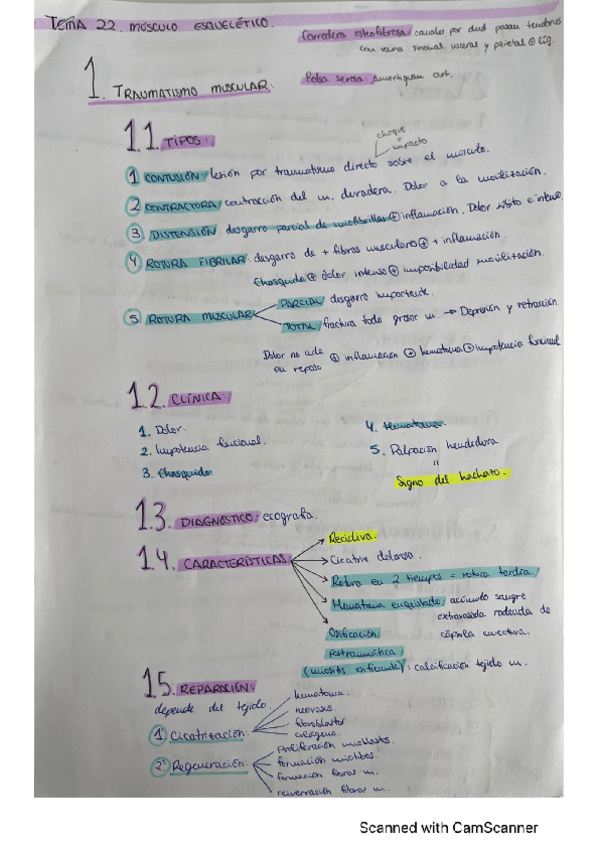 TEMA 22. MÚSCULO ESQUELÉTICO.
Corredera osteofibrosa: canales por dnd pasan tendones
con vaina sinovial visceral y parietal
Bolsa serosa: amortiguan art.
1. TRAUMATISMO MUSCULAR.
1.1 TIPOS:
choque
impacto
1 CONTUSIÓN: lesión por traumatismo directo sobre el músculo.
2 CONTRACTURA: contracción del m. duradera. Dolor a la movilización.
3. DISTENSIÓN: desgarro parcial de miofibrillas ⊕ inflamación. Dolor súbito e intenso.
4. ROTURA FIBRILAR: desgarro de + fibras musculares ⊕ + inflamación.
Chasquido ⊕ dolor intenso ⊕ imposibilidad movilización.
5. ROTURA MUSCULAR
PARCIAL: desgarro importante.
TOTAL: fractura todo grosor m. → Depresión y retracción
Dolor no cede en reposo ⊕ inflamación ⊕ hematoma ⊕ impotencia funcional
1.2. CLÍNICA:
1. Dolor.
2. Impotencia funcional.
3. Chasquido.
4. Hematoma.
5. Palpación hendidura
"
Signo del hachazo.
1.3. DIAGNÓSTICO: ecografía.
1.4. CARACTERÍSTICAS
Recidiva.
Cicatriz dolorosa.
Rotura en 2 tiempos = rotura tardía.
Hematoma enquistado: acúmulo sangre
extravasada rodeada de
cápsula conectiva.
Osificación
postraumática
(miositis osificante): calcificación tejido m.
1.5. REPARACIÓN:
depende del tejido.
1º Cicatrización
hematoma.
fibroblastos
colágeno.
2º Regeneración.
Proliferación mioblastos.
formación miotubos.
formación fibras m.
reinervación fibras m.
Scanned with CamScanner